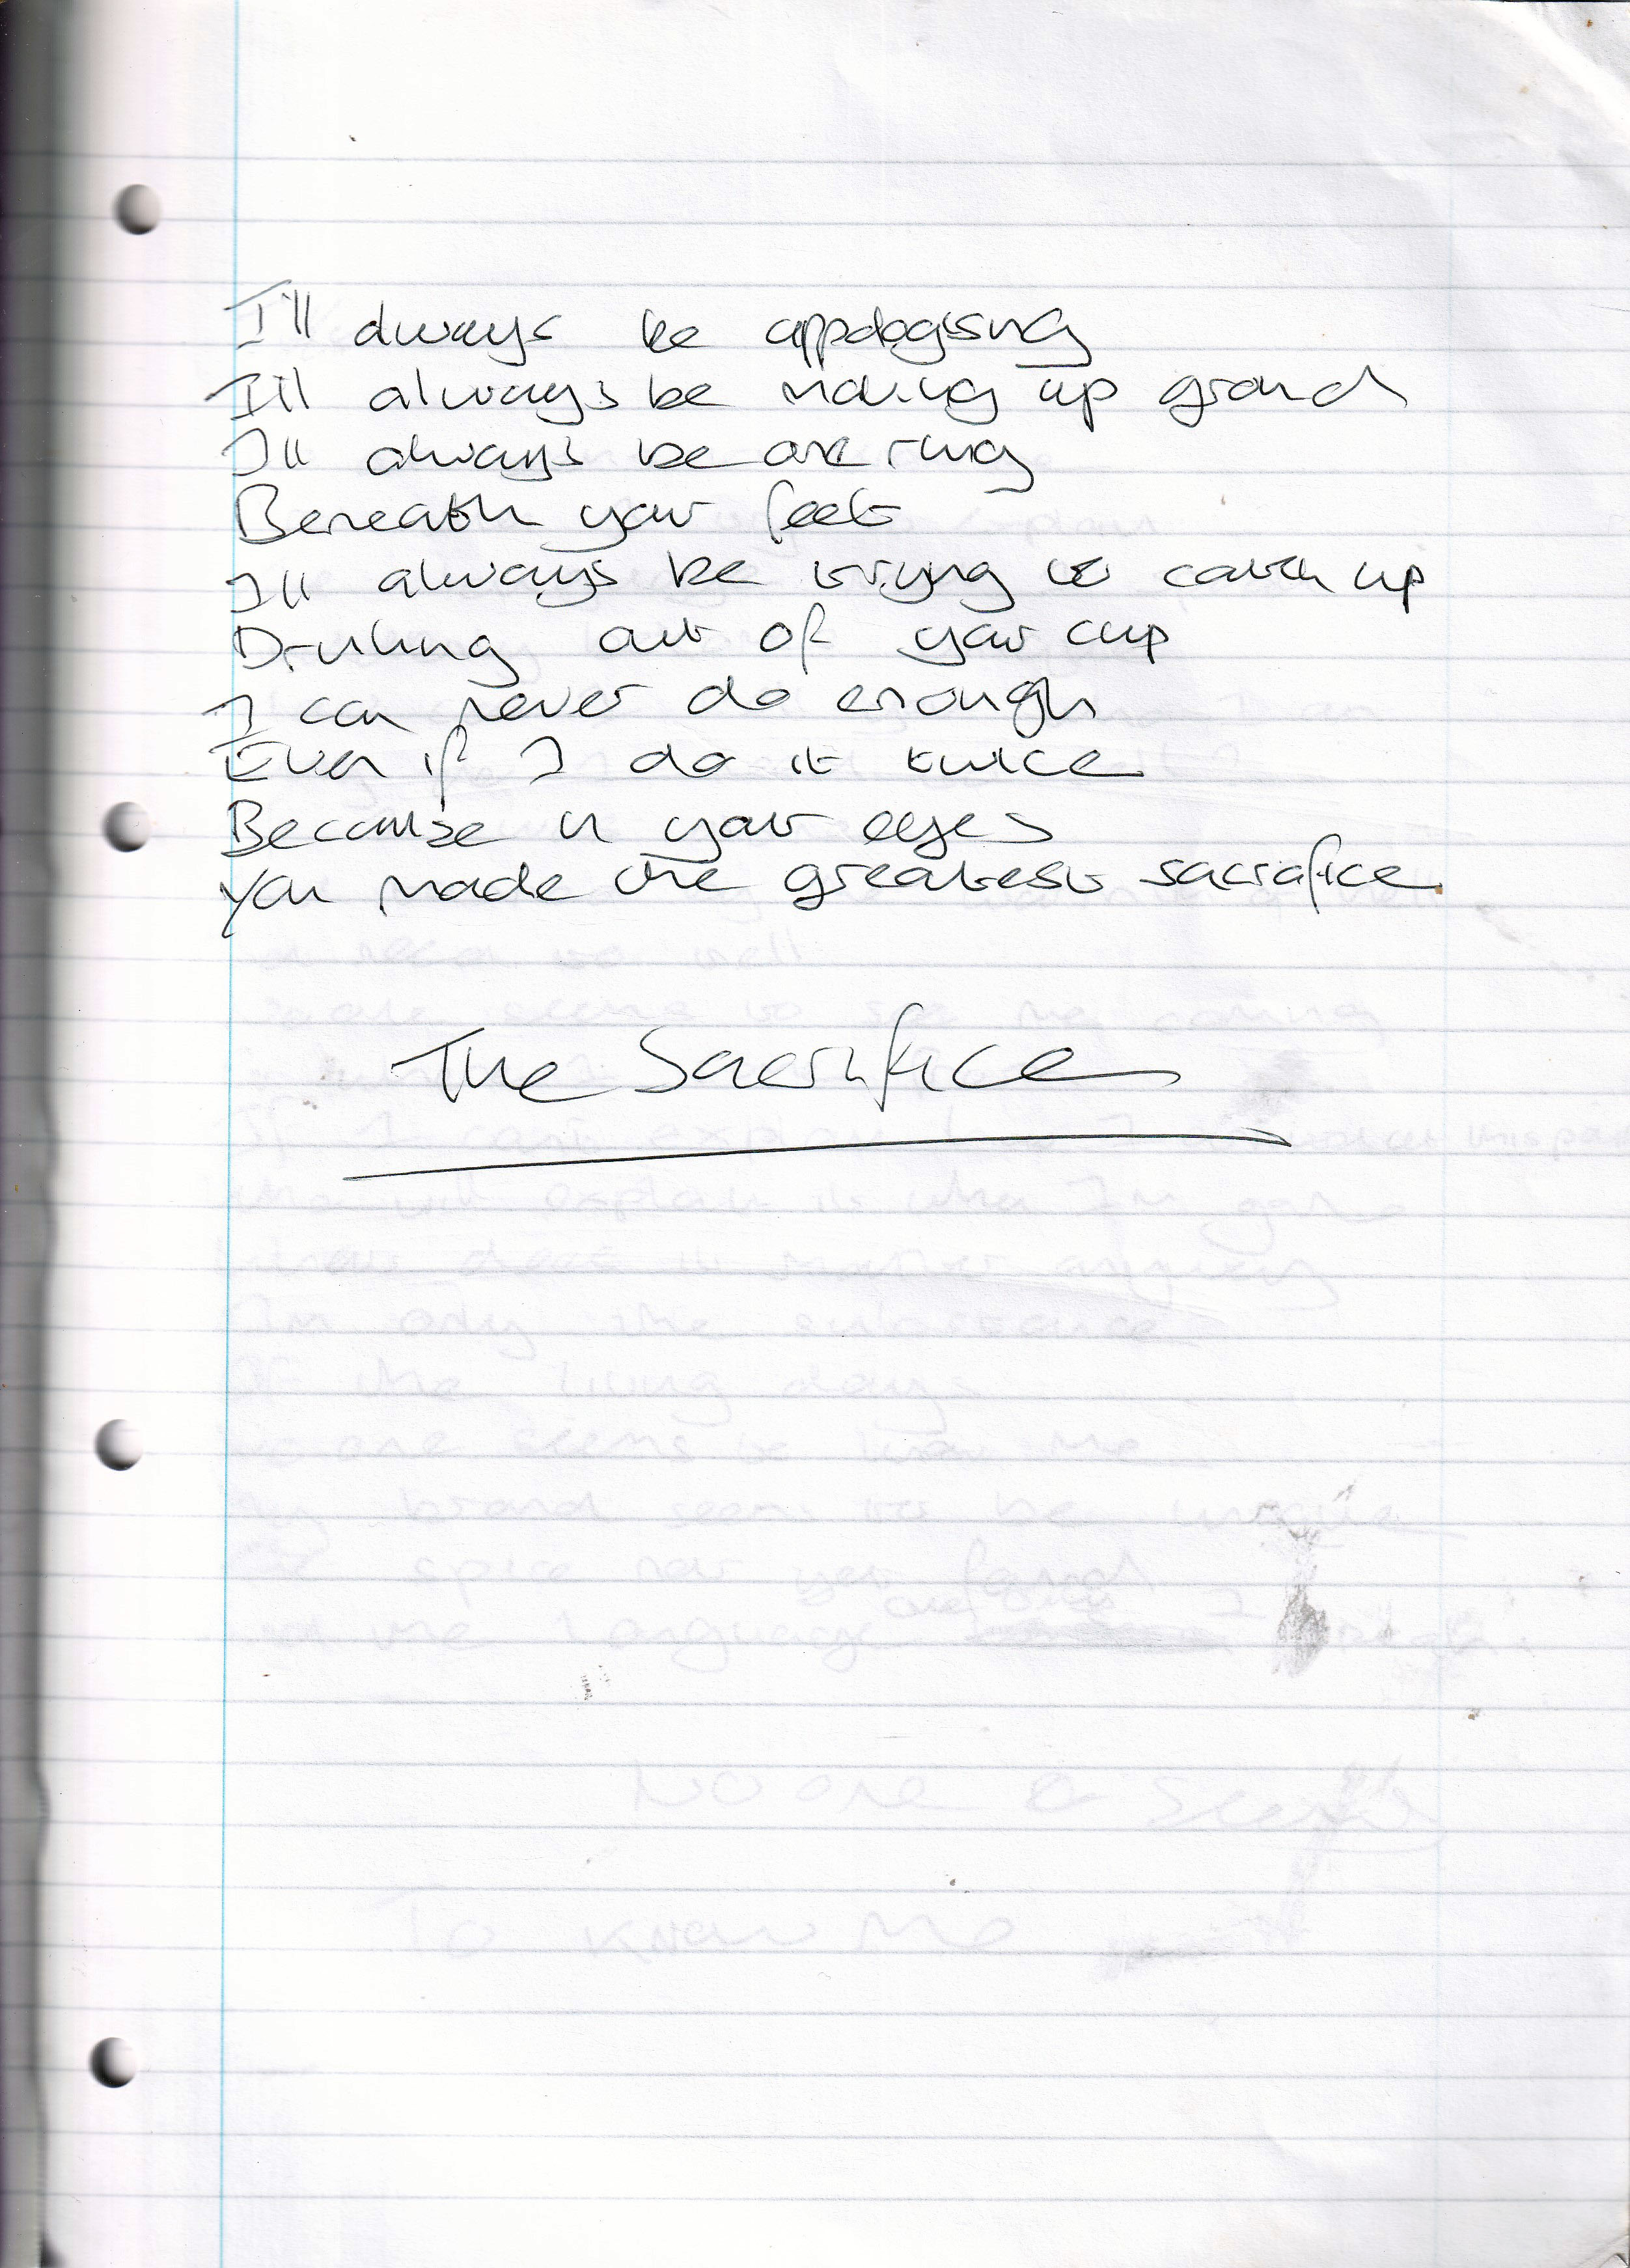 I'll always be appologising
I'll always be making up ground
I'll always be
Beneath your feet
I'll always be trying to catch up
Drinking out of your cup
I can never do enough
Even if I do it twice
Because in your eyes
You made the greatest sacrafice.
The Sacrifice